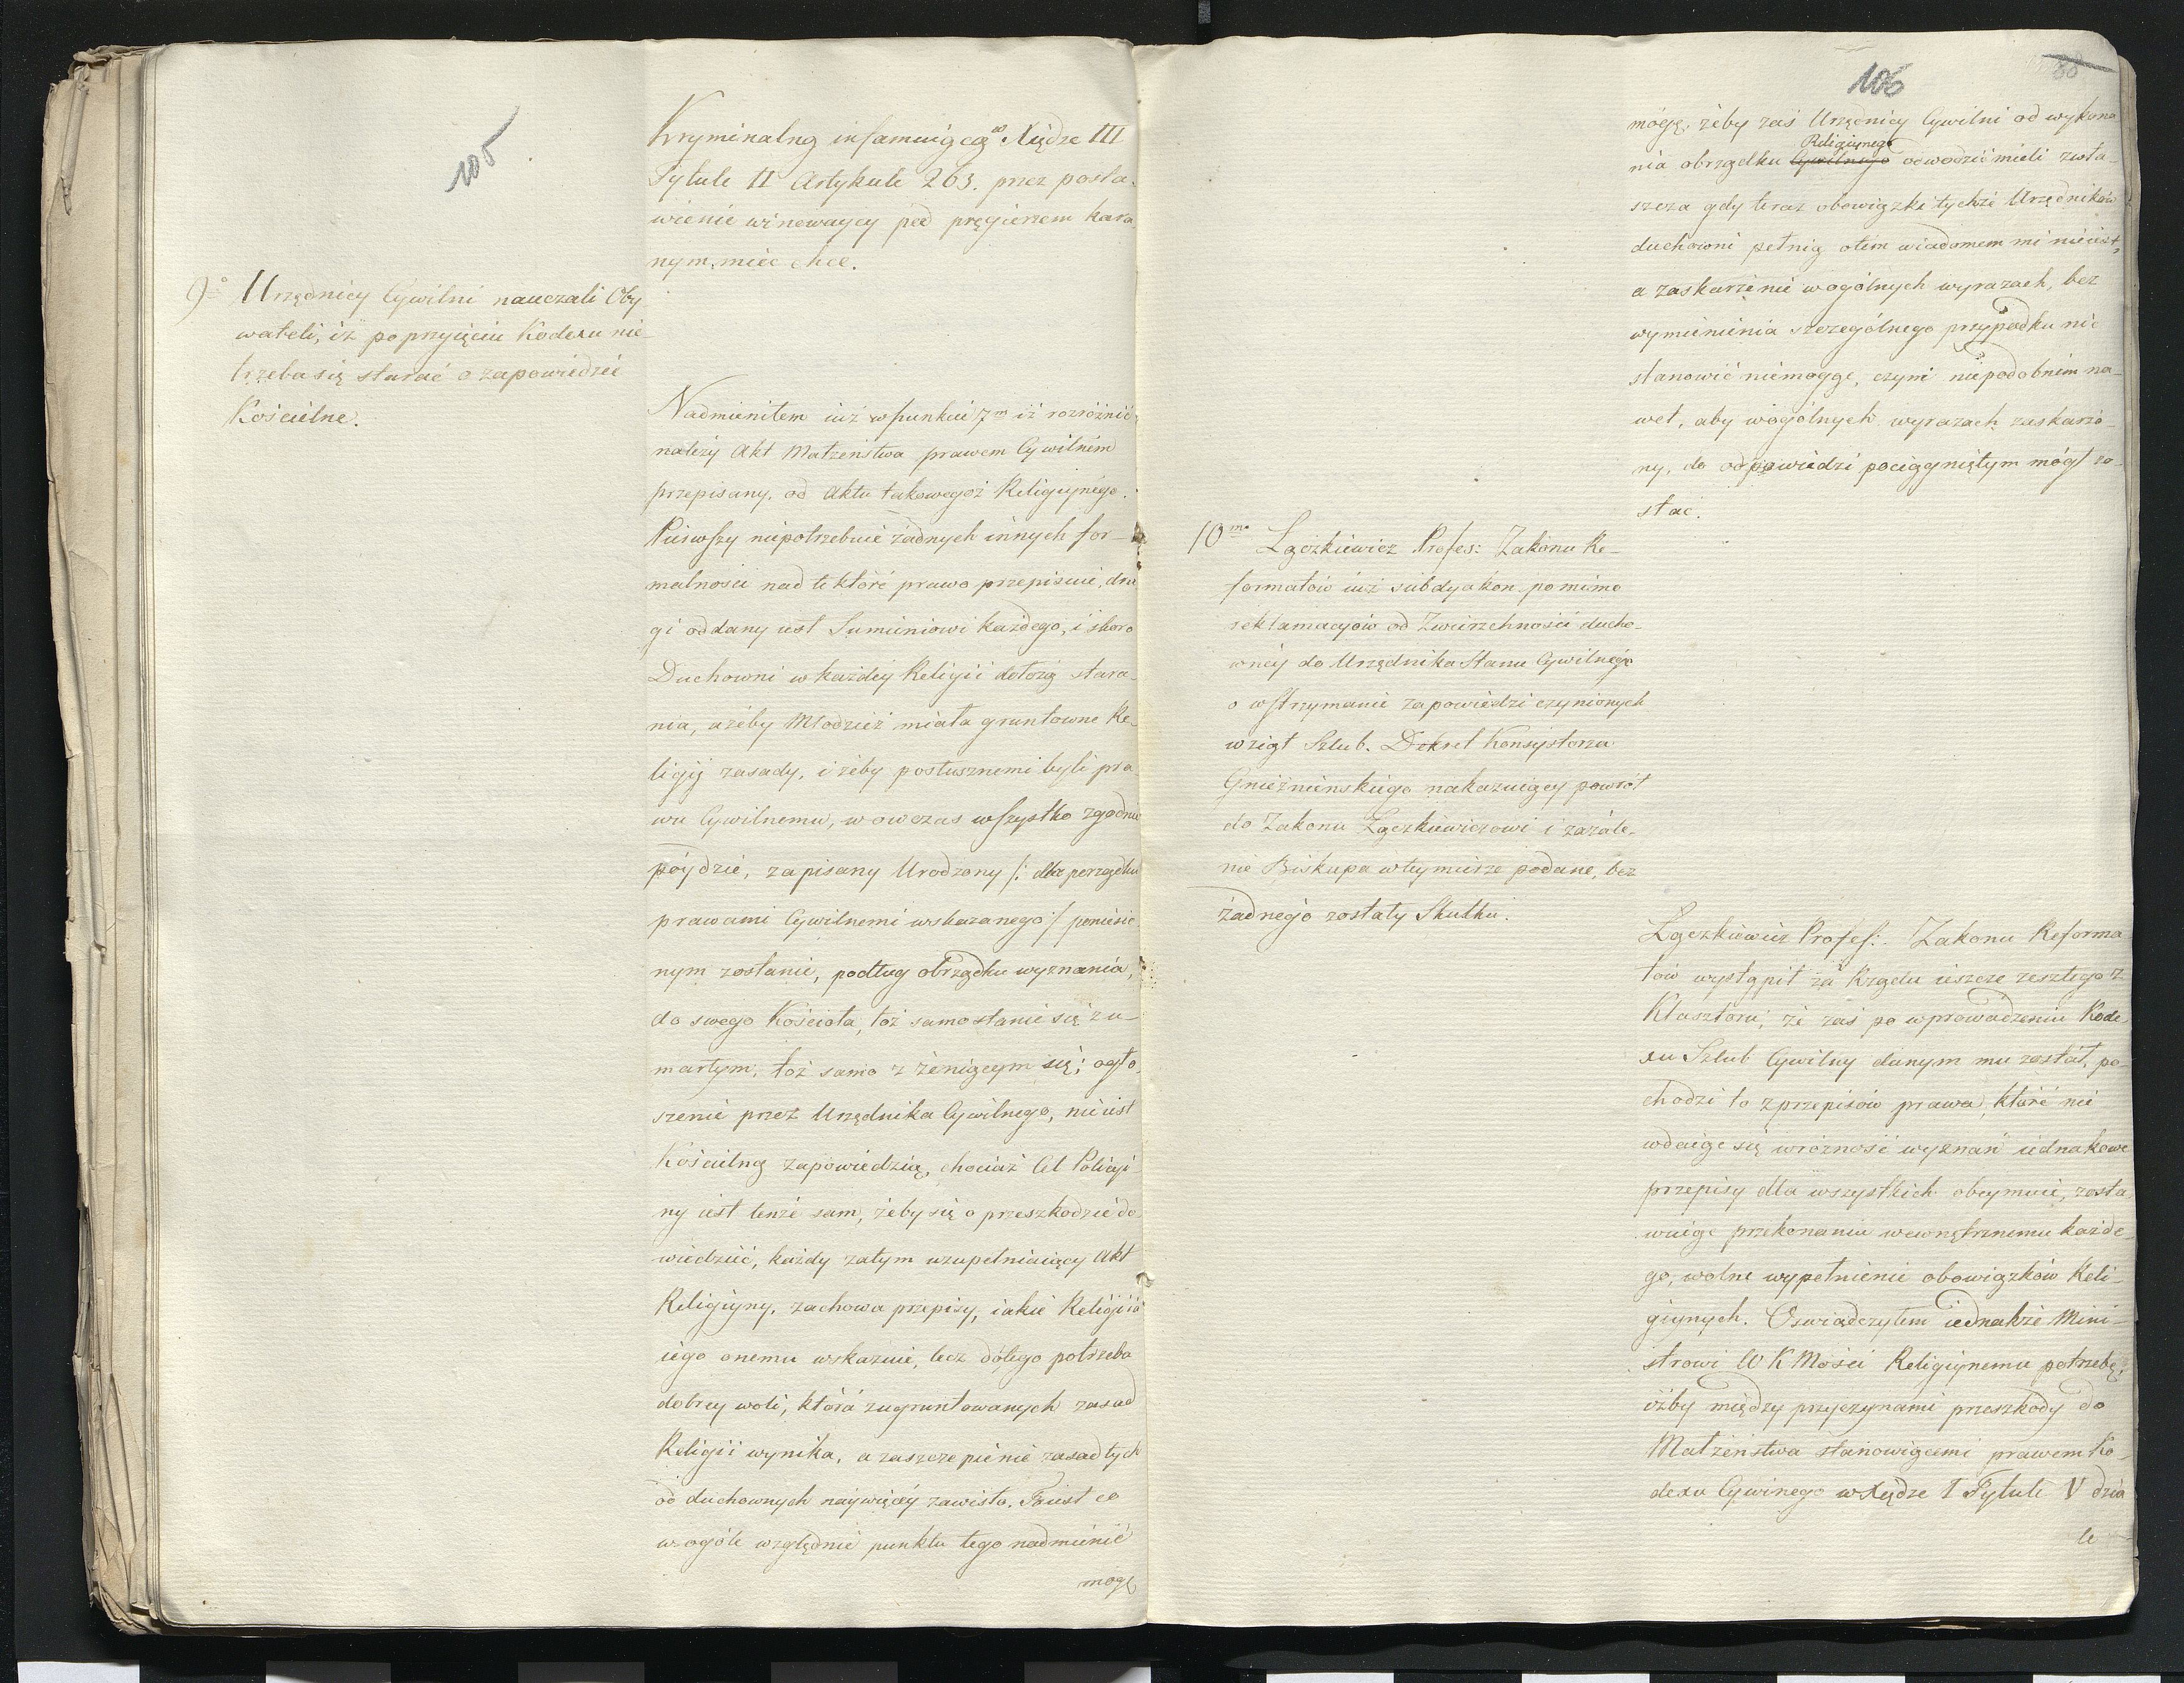 105
Kryminalną infamuiącą w Xiędze III
Tytule II Artykule 263. przez posta-
wienie winowaycy pod pręgierzem kara
nym mieć chce.
9o Urzędnicy Cywilni nauczali Oby-
wateli, iż po przyięciu Kodexu nie
trzeba się starać o zapowiedzie
Kościelne.
Nadmieniłem iuż w punkcie 7m iż rozróżnić
należy Akt Małżeństwa prawem Cywilnem
przepisany, od Aktu takowegoż Religiynego.
Pierwszy niepotrzebuie żadnych innych for-
malności nad te które prawo przepisuie, dru
gi oddany iest Sumieniowi każdego, i skoro
Duchowni w każdéy Religii dołożą stara-
nia, ażeby Młodzież miała gruntowne Re-
ligij zasady, i żeby posłusznemi byli pra-
wu Cywilnemu, wowczas wszystko zgodnie
póydzie, zapisany Urodzony /: dla porządku
prawami Cywilnemi wskazanego :/ poniesio
nym zostanie, podług obrządku wyznania,
do swego Kościoła, toż samo stanie się z u-
marłym, toż samo z żeniącym się; ogło-
szenie przez Urzędnika Cywilnego, nie iest
Kościelną zapowiedzią, chociaż Cel Policyi-
ny iest tenże sam, żeby się o przeszkodzie do-
wiedzieć, każdy zatym uzupełniaiący Akt
Religiyny, zachowa przepisy, iakie Religiia
iego onemu wskazuie, lecz dotego potrzeba
dobrey woli, która zugruntowanych zasad
Religii wynika, a zaszczepienie zasad tych
od duchownych naywięcéy zawisło. To iest co
wogóle względnie punktu tego nadmienić
mogę
106
88
mogę, żeby zaś Urzędnicy Cywilni od wykona
Religiynego
nia obrządku Cywilnego odwodzić mieli zwła-
szcza gdy teraz obowiązki tychże Urzędników
duchowni pełnią otém wiadomem mi nie iest,
a zaskarżenie wogólnych wyrazach, bez
wymienienia szczególnego przypadku nic
stanowić niemogąc, czyni niepodobném na-
wet, aby wogólnych wyrazach zaskarżo-
ny, do odpowiedzi pociągniętym mógł zo-
stać.
10mo Łączkiewicz Profes: Zakonu Re-
formatów iuż subdyakon pomimo
reklamacyów od Zwierzchności ducho-
wnéy do Urzędnika Stanu Cywilnego
o wstrzymanie zapowiedzi czynionych
wziął Szlub. Dekret Konsystorza
Gnieźnieńskiego nakazuiący powrót
do Zakonu Łączkiewiczowi i zażale-
nie Biskupa wtéymierze podane, bez
żadnego zostały Skutku.
Łączkiewicz Profes:. Zakonu Reforma
tów wystąpił za Rządu ieszcze zeszłego z
Klasztoru, że zaś po wprowadzeniu Kode-
xu Szlub Cywilny danym mu został, po-
chodzi to z przepisów prawa, które nie
wdaiąc się wróżność wyznań iednakowe
przepisy dla wszystkich obeymuie, zosta
wuiąc przekonaniu wewnętrznemu każde-
go, wolne wypełnienie obowiązków Reli-
giynych. Oświadczyłem iednakże Mini-
strowi W K Mości Religiynemu potrzebę,
iżby między przyczynami przeszkody do
Małżeństwa stanowiącemi prawem Ko-
dexu Cywinego w Xiędze I Tytule V dzia
le